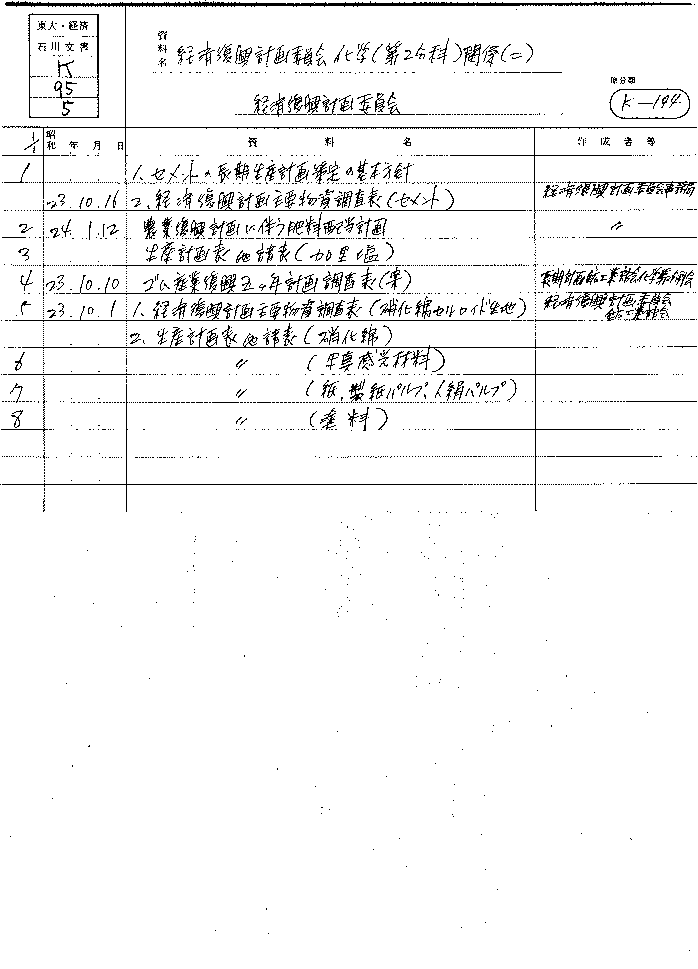 東大・経済
石川文書
K
95
5
資料名 経済復興計画委員会 化学(第2分科)関係(二)
経済復興計画委員会
原分類
K-194
1/1 昭和 年 月 日 資 料 名 作成者等
1 1、セメントの長期生産計画策定の基本方針
23.10.16 2、経済復興計画主要物資調査表(セメント) 経済復興計画委員会事務局
2 24.1.12 農業復興計画に伴う肥料配当計画 〃
3 生産計画表他諸表(加里塩)
4 23.10.10 ゴム産業復興五ヶ年計画調査表(案) 長期計画鉱工業部会化学第2部会
5 23.10.1 1、経済復興計画主要物資調査表(硝化綿セルロイド生地) 経済復興計画委員会
鉱工業部会
2、生産計画表他諸表(硝化綿)
6 〃 (写真感光材料)
7 〃 (紙、製紙パルプ、人絹パルプ)
8 〃 (塗料)